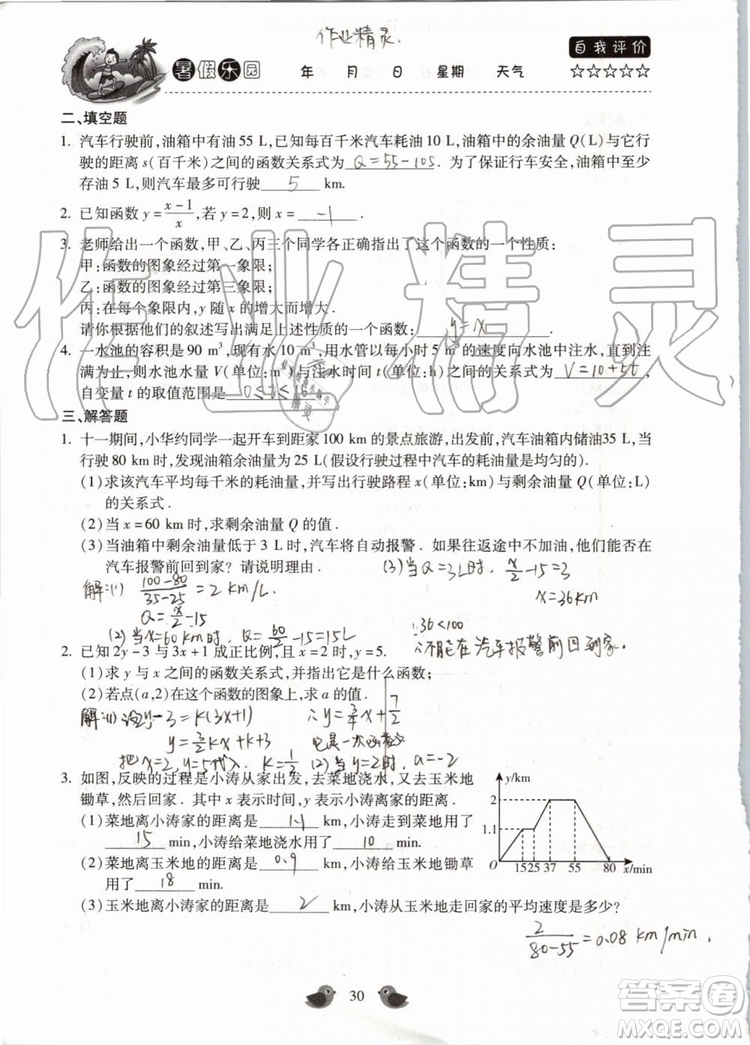 作业精灵.
暑假乐园
年 月 日 星期 天气
自我评价
☆☆☆☆☆
二、填空题
1. 汽车行驶前,油箱中有油 55 L,已知每百千米汽车耗油 10 L,油箱中的余油量 Q(L)与它行
驶的距离 s(百千米)之间的函数关系式为 Q=55-10s .为了保证行车安全,油箱中至少
存油 5 L,则汽车最多可行驶 5 km.
2. 已知函数 y=(x-1)/x,若 y=2,则 x= -1 .
3. 老师给出一个函数,甲、乙、丙三个同学各正确指出了这个函数的一个性质:
甲:函数的图象经过第一象限;
乙:函数的图象经过第三象限;
丙:在每个象限内,y 随 x 的增大而增大.
请你根据他们的叙述写出满足上述性质的一个函数: y=x
4. 一水池的容积是 90 m³,现蓄水 10 m³,用水管以每小时 5 m³的速度向水池中注水,直到注
满为止,则水池水量 V(单位:m³)与注水时间 t(单位:h)之间的关系式为 V=10+5t ,
自变量 t 的取值范围是 0≤t≤16
三、解答题
1. 十一期间,小华约同学一起开车到距家 100 km 的景点旅游,出发前,汽车油箱内储油35 L,当
行驶 80 km 时,发现油箱余油量为 25 L(假设行驶过程中汽车的耗油量是均匀的).
(1)求该汽车平均每千米的耗油量,并写出行驶路程 x(单位:km)与剩余油量 Q(单位:L)
的关系式.
(2)当 x=60 km 时,求剩余油量 Q 的值.
(3)当油箱中剩余油量低于 3 L 时,汽车将自动报警. 如果往返途中不加油,他们能否在
汽车报警前回到家? 请说明理由.
(3)当Q=3L时, x/2-15=3
x=36km
解:(1) (100-80)/(35-25)=2 km/L
Q=x/2-15
(2)当x=60km时, Q=60/2-15=15L
∵36<100
∴不能在汽车报警前回到家.
2. 已知 2y-3 与 3x+1 成正比例,且 x=2 时,y=5.
(1)求 y 与 x 之间的函数关系式,并指出它是什么函数;
(2)若点(a,2)在这个函数的图象上,求 a 的值.
y=3/2kx+k+3
∴y=3/4x+7/2
它是一次函数
把x=2,y=5代入, k=1/2
(2)当y=2时, a=-2
3. 如图,反映的过程是小涛从家出发,去菜地浇水,又去玉米地
锄草,然后回家. 其中 x 表示时间,y 表示小涛离家的距离.
(1)菜地离小涛家的距离是 1.1 km,小涛走到菜地用了
15 min,小涛给菜地浇水用了 10 min.
(2)菜地离玉米地的距离是 0.9 km,小涛给玉米地锄草
用了 18 min.
(3)玉米地离小涛家的距离是 2 km,小涛从玉米地走回家的平均速度是多少?
2/(80-55)=0.08 km/min.
y/km
2
1.1
O 15 25 37 55 80 x/min
30
作业精灵
答案圈
MXQE.COM